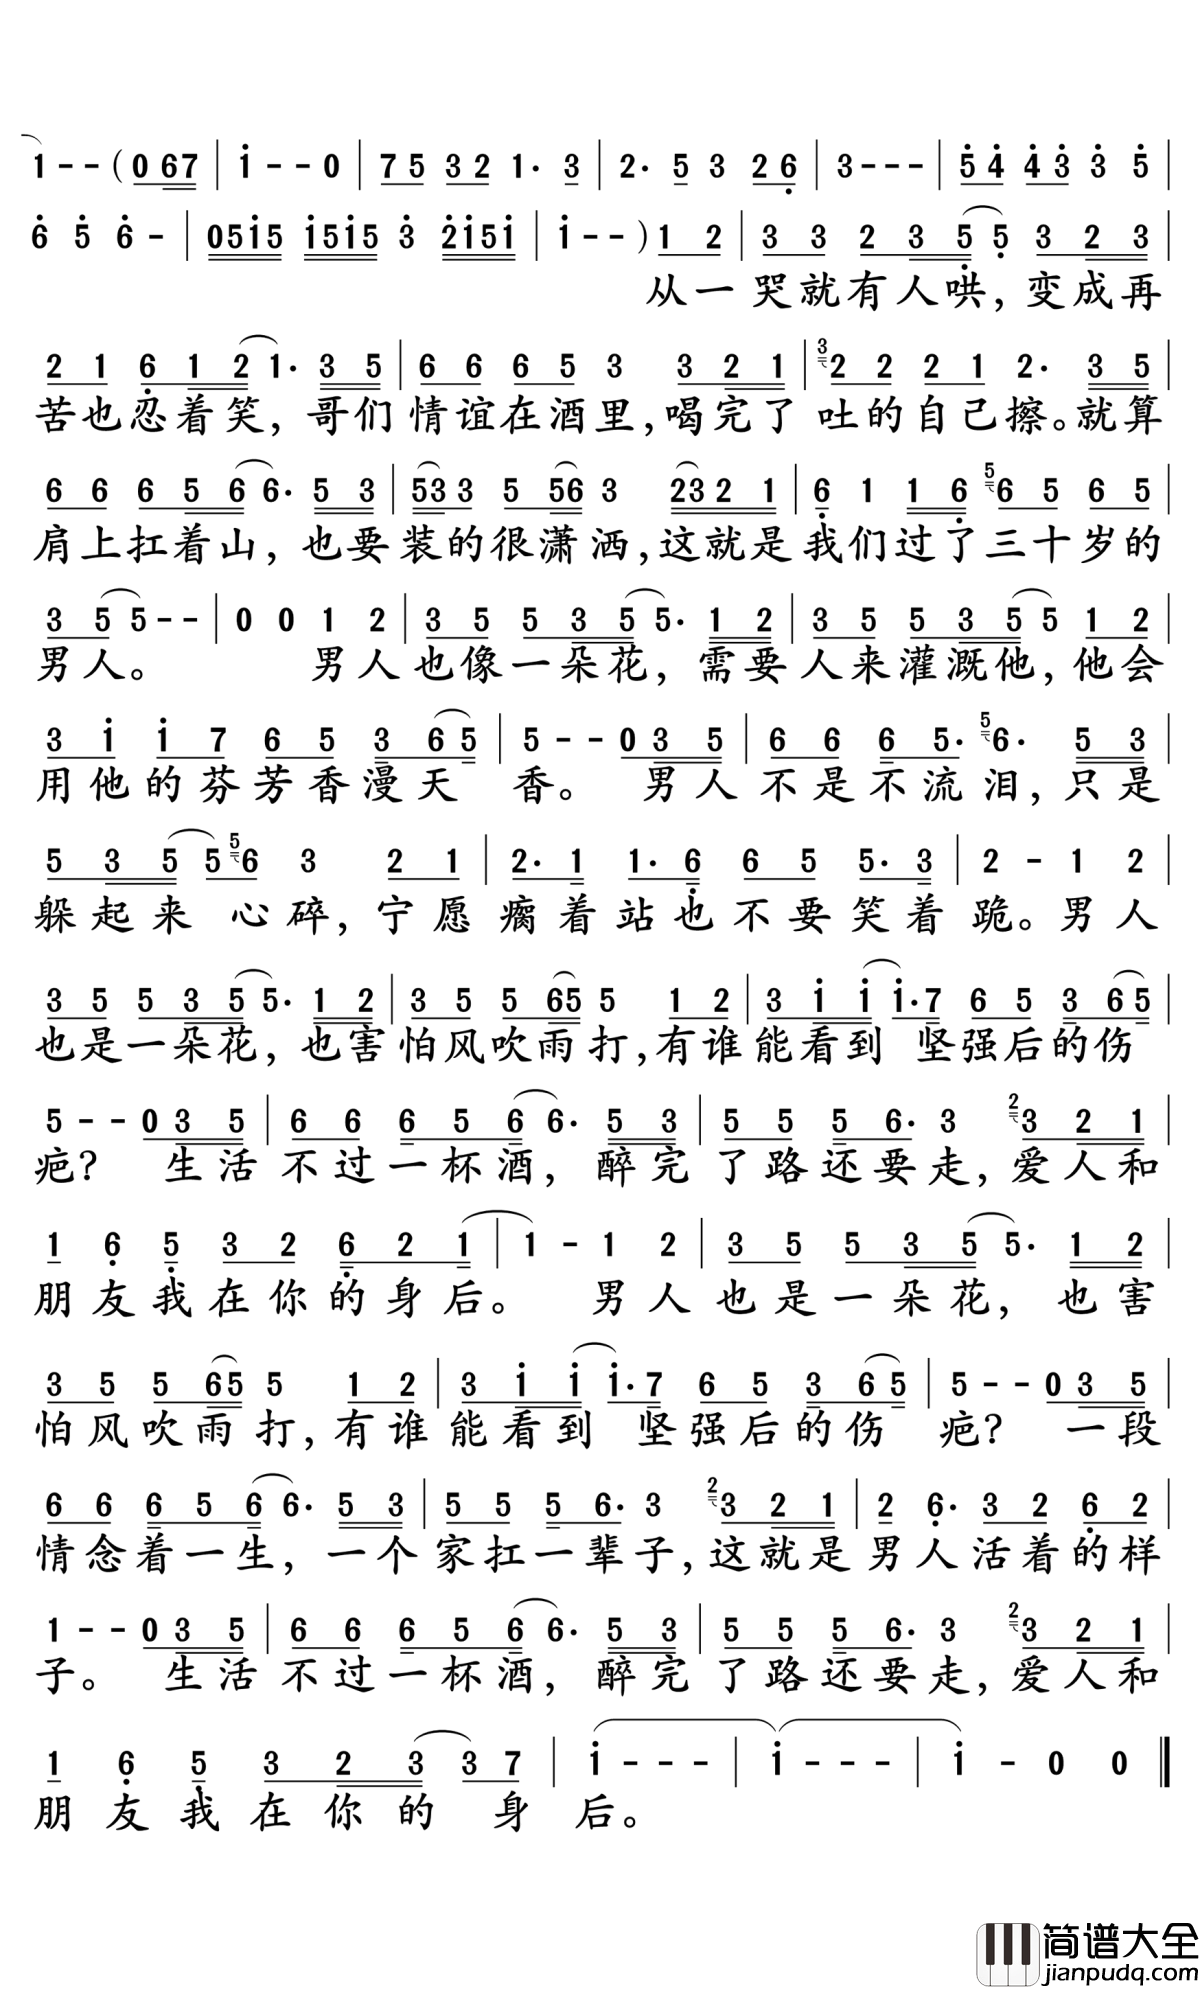 1--(067|i--0|75 32 1·3|2·5 3 26|3---|54 43 3 5|
6 5 6-|05i5 i5i5 3 2i5i|i--)12|33 2355 323|
从一哭就有人哄,变成再
21 6121·35|66 65 3 321|³22 21 2·35|
苦也忍着笑,哥们情谊在酒里,喝完了吐的自己擦。就算
66 6566·53|533 556 3 2321|6 1 16 ⁵65 65|
肩上扛着山,也要装的很潇洒,这就是我们过了三十岁的
355--|0 0 1 2|35 5355·12|35 5355 12|
男人。男人也像一朵花,需要人来灌溉他,他会
3i i7 65 365|5--035|66 65·⁵6·53|
用他的芬芳香漫天香。男人不是不流泪,只是
535 5⁵6 3 21|2·1 1·6 65 5·3|2-1 2|
躲起来心碎,宁愿瘸着站也不要笑着跪。男人
35 5355·12|35 565 5 12|3ii i·7 65 365|
也是一朵花,也害怕风吹雨打,有谁能看到坚强后的伤
5--035|66 6566·53|55 56·3 ²321|
疤?生活不过一杯酒,醉完了路还要走,爱人和
1 6 5 32 621|1-1 2|35 5355·12|
朋友我在你的身后。男人也是一朵花,也害
35 565 5 12|3ii i·7 65 365|5--035|
怕风吹雨打,有谁能看到坚强后的伤疤?一段
66 6566·53|55 56·3 ²321|2 6·32 62|
情念着一生,一个家扛一辈子,这就是男人活着的样
1--035|66 6566·53|55 56·3 ²321|
子。生活不过一杯酒,醉完了路还要走,爱人和
1 6 5 323 37|i---|i---|i-0 0‖
朋友我在你的身后。
简谱大全
jianpudq.com